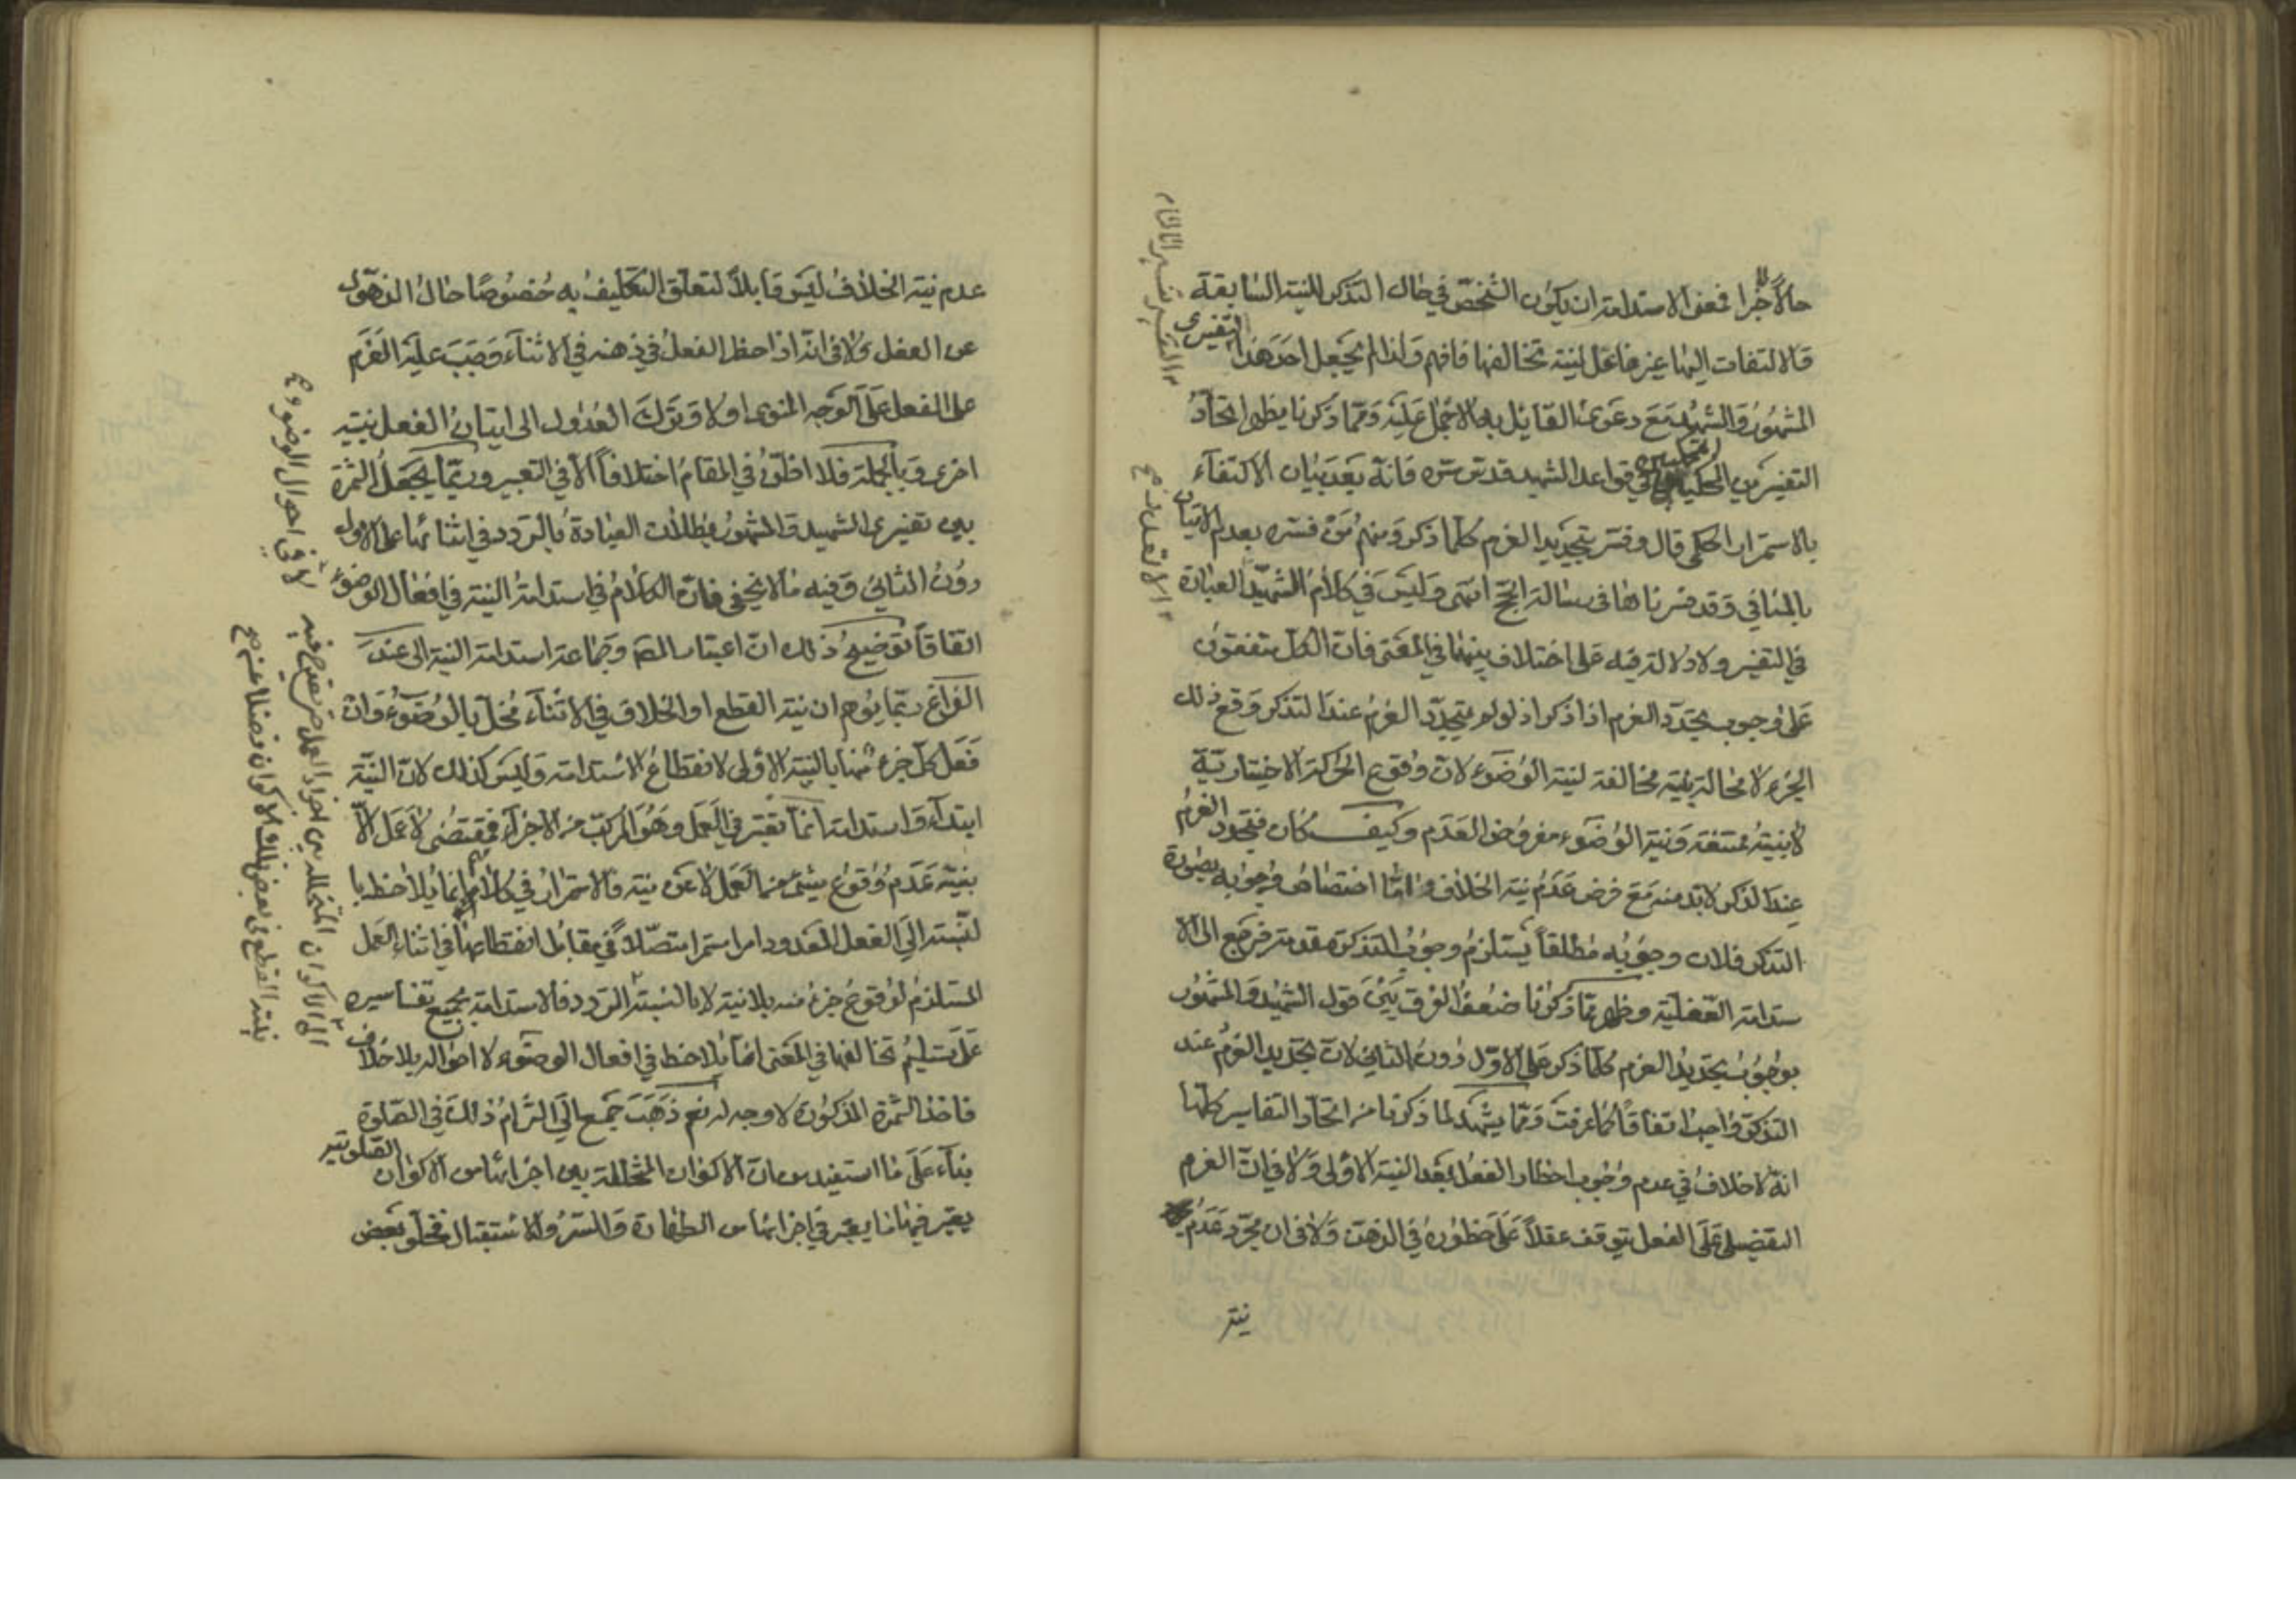 حالاً جزا فمعنى الاستدامة ان يكون الشخص في حال التذكر للنية السابقة
والالتفات اليها غير فاعل لنية تخالفها فافهم ولذا لم يجعل احد هذا التفسيرى
المشهور والشهيد مع دعوى القائل به الاجماع عليه ومما ذكرنا يظهر اتحاد
التفسيرين المحكيين في قواعد الشهيد قدس سره فانه بعد بيان الاكتفاء
بالاستمرار الحكمي قال وفسر بتجديد العزم كلما ذكر ومنهم من فسره بعدم الاتيان
بالمنافي وقد فسرناها في رسالة الحج انتهى وليس في كلام الشهيد العبارة
في التفسير ولا دلالة فيه على اختلاف بينهما في المعنى فان الكل متفقون
على وجوب تجدد العزم اذا ذكر اذ لو لم يتجدد العزم عند التذكر وقع ذلك
الجزء لا محالة بنية مخالفة لنية الوضوء لان وقوع الحركة الاختيارية
لا بنية ممتنعة ونية الوضوء مفروض العدم وكيف كان فتجدد العزم
عند الذكر لا بد منه مع فرض عدم نية الخلاف واما اختصاص وجوبه بصورة
التذكر فلان وجوبه مطلقاً يستلزم وجوب التذكر مقدمة فرجع الى الا
ستدامة الفعلية وظهر مما ذكرنا ضعف الفرق بين قول الشهيد والمشهور
بوجوب تجديد العزم كلما ذكر على الاول دون الثاني لان تجديد العزم عند
التذكر واجب اتفاقاً كما عرفت ومما يشهد لما ذكرنا من اتحاد التفاسير كلها
انه لا خلاف في عدم وجوب احظار الفعل بعد النية الاولى ولا في ان العزم
التفصيلي على الفعل يتوقف عقلاً على حظوره في الذهن ولا في ان مجرد عدم
نية
عدم نية الخلاف ليس قابلاً لتعلق التكليف به خصوصاً حال الذهول
عن الفعل ولا في انه اذا حظر الفعل في ذهنه في الاثناء وجب عليه العزم
على الفعل على الوجه المنوى اولا وترك العدول الى اتيان الفعل بنية
اخرى وبالجملة فلا اظن في المقام اختلافاً الا في التعبير وربما يجعل الثمرة
بين تفسيرى الشهيد والمشهور بطلان العبادة بالتردد في اثنائها على الاول
دون الثاني وفيه ما لا يخفى فان الكلام في استدامة النية في افعال الوضوء
اتفاقاً توضيح ذلك ان اعتبار المص وجماعة استدامة النية الى عند
الفراغ ربما يوهم ان نية القطع او الخلاف في الاثناء مخل بالوضوء وان
فعل كل جزء منها بالنية الاولى لانقطاع الاستدامة وليس كذلك لان النية
ابتداء واستدامة انما تعتبر في العمل وهو المركب من الاجزاء فمقتضى لا عمل الا
بنية عدم وقوع شيء من العمل لا عن نية والاستمرار في كلامهم انما يلاحظ با
لنسبة الى الفعل المعدود امرا مستمرا متصلاً في مقابل انقطاعها في اثناء العمل
المستلزم لوقوع جزء منه بلا نية لا بالنسبة التردد فالاستدامة بجميع تفاسيره
على تسليم تخالفها في المعنى انما يلاحظ في افعال الوضوء لا احواله بلا خلاف
فاخذ الثمرة المذكورة لا وجه له نعم ذهب جمع الى التزام ذلك في الصلوة
بناء على ما استفيد من ان الاكوان المتخللة بين اجزائها من الاكوان الصلوتية
يعتبر فيها ما يعتبر في اجزائها من الطهارة والستر والاستقبال فخلو بعض
لا في احوال الوضوء ع
الى الاكوان المتخللة بين اجزاء العمل
بنية القطع في بعض تلك الاكوان فضلا عن